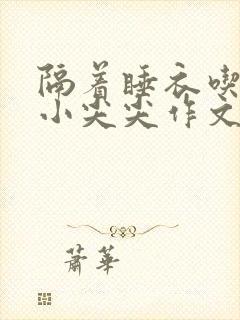 隔着睡衣喫
小尖尖作文
萧华